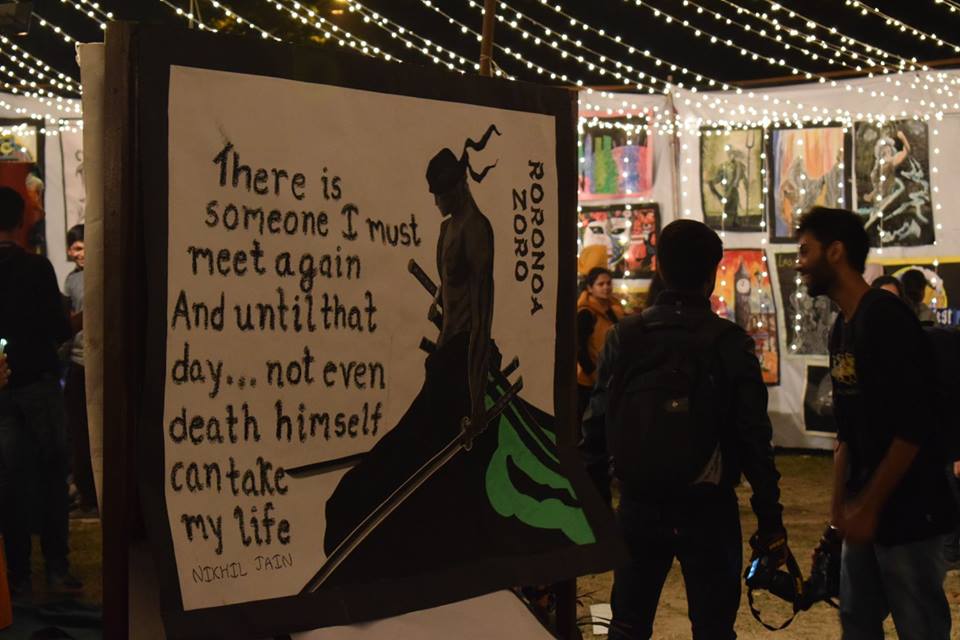 There is
someone I must
meet again
And until that
day... not even
death himself
can take
my life
NIKHIL JAIN
RORONOA
ZORO